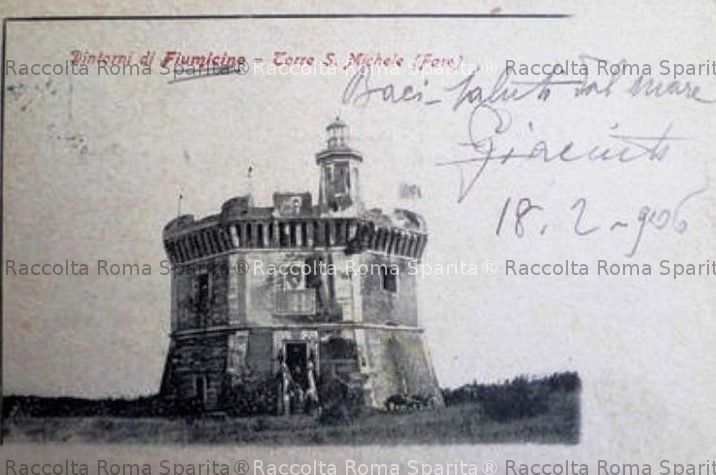 Dintorni di Fiumicino - Torre S. Michele (Faro)
Baci - Saluti dal mare
Giacinto
18. 2 - 906
Raccolta Roma Sparita® Raccolta Roma Sparita® Raccolta Roma Sparita
Raccolta Roma Sparita® Raccolta Roma Sparita® Raccolta Roma Sparita
Raccolta Roma Sparita® Raccolta Roma Sparita® Raccolta Roma Sparita